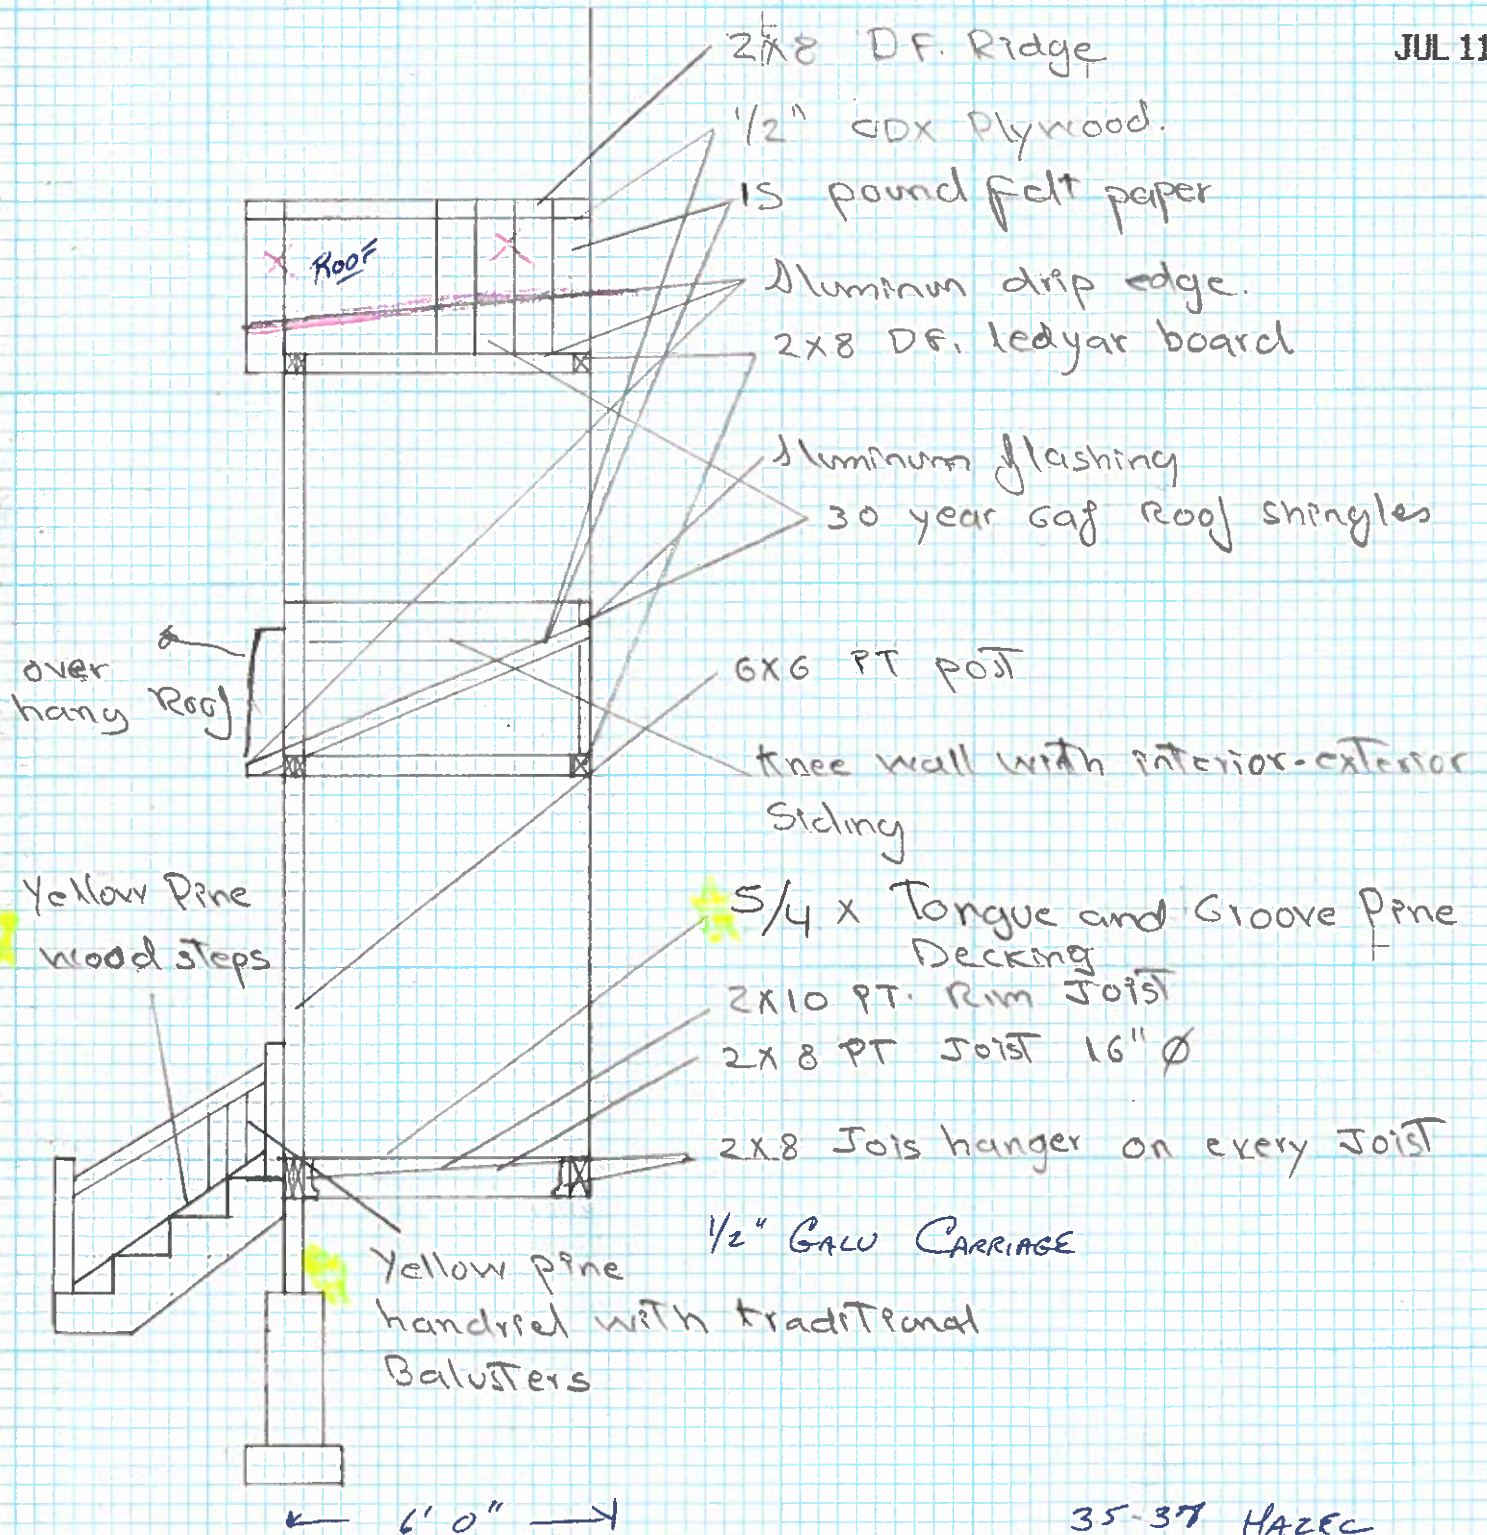 JUL 11
2x8 DF. Ridge
1/2" CDX Plywood.
15 pound felt paper
Roof
Aluminun drip edge.
2x8 DF. ledyar board
Aluminum flashing
30 year Gaf Roof shingles
over
hang Roof
6x6 PT post
knee wall with interior-exterior
Siding
Yellow Pine
wood steps
5/4 x Tongue and Groove Pine
Decking
2x10 PT. Rim Joist
2x8 PT Joist 16" Ø
2x8 Jois hanger on every Joist
1/2" GALV CARRIAGE
Yellow pine
handriel with traditional
Balusters
6' 0"
35-37 HAZEL